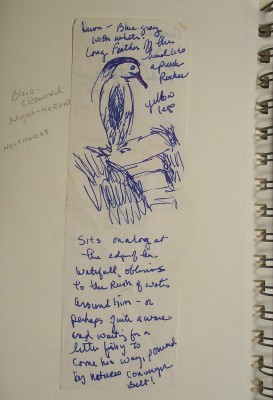 Heron - Blue gray
with white.
Long Feather off the
head like
a punk
Rocker
yellow
legs
Black-
CROWNED
NIGHT-HERON
Sits on a log at
the edge of the
Waterfall, oblivious
to the Rush of water
around him - or
perhaps quite aware
and waiting for a
little fishy to
come his way, powered
by natures conveyor
Belt!